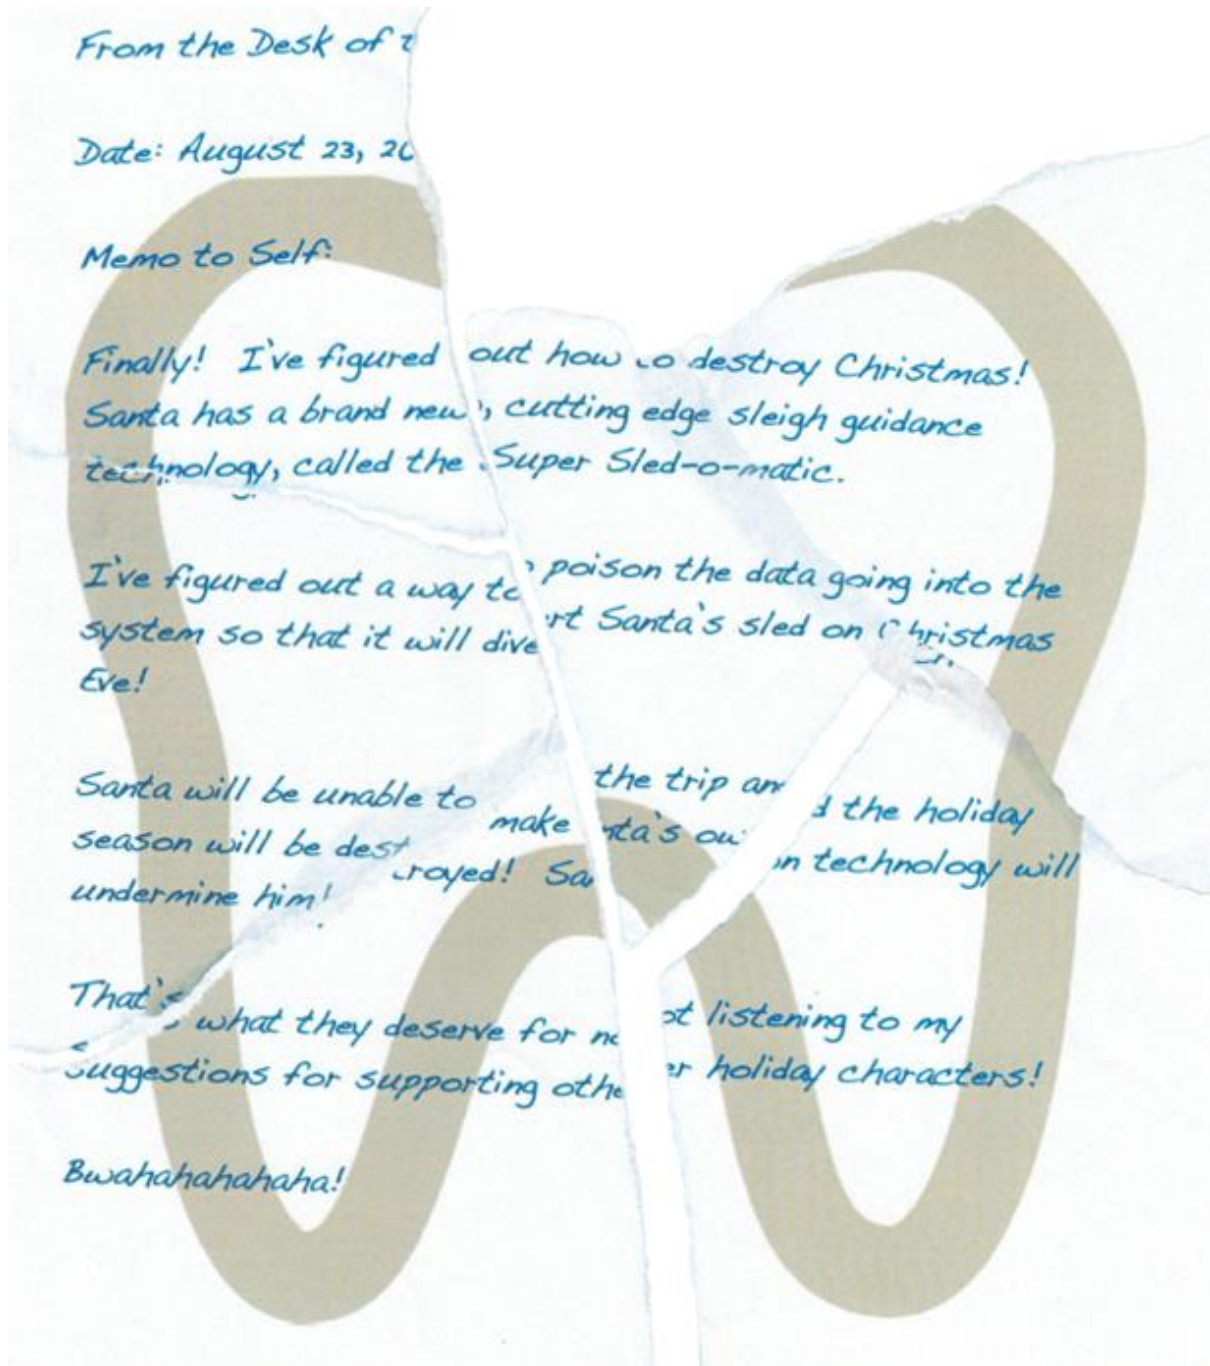 From the Desk of t
Date: August 23, 20
Memo to Self:
Finally! I've figured out how to destroy Christmas!
Santa has a brand new, cutting edge sleigh guidance
technology, called the Super Sled-o-matic.
I've figured out a way to poison the data going into the
system so that it will divert Santa's sled on Christmas
Eve!
Santa will be unable to make the trip and the holiday
season will be destroyed! Santa's own technology will
undermine him!
That's what they deserve for not listening to my
suggestions for supporting other holiday characters!
Bwahahahahaha!